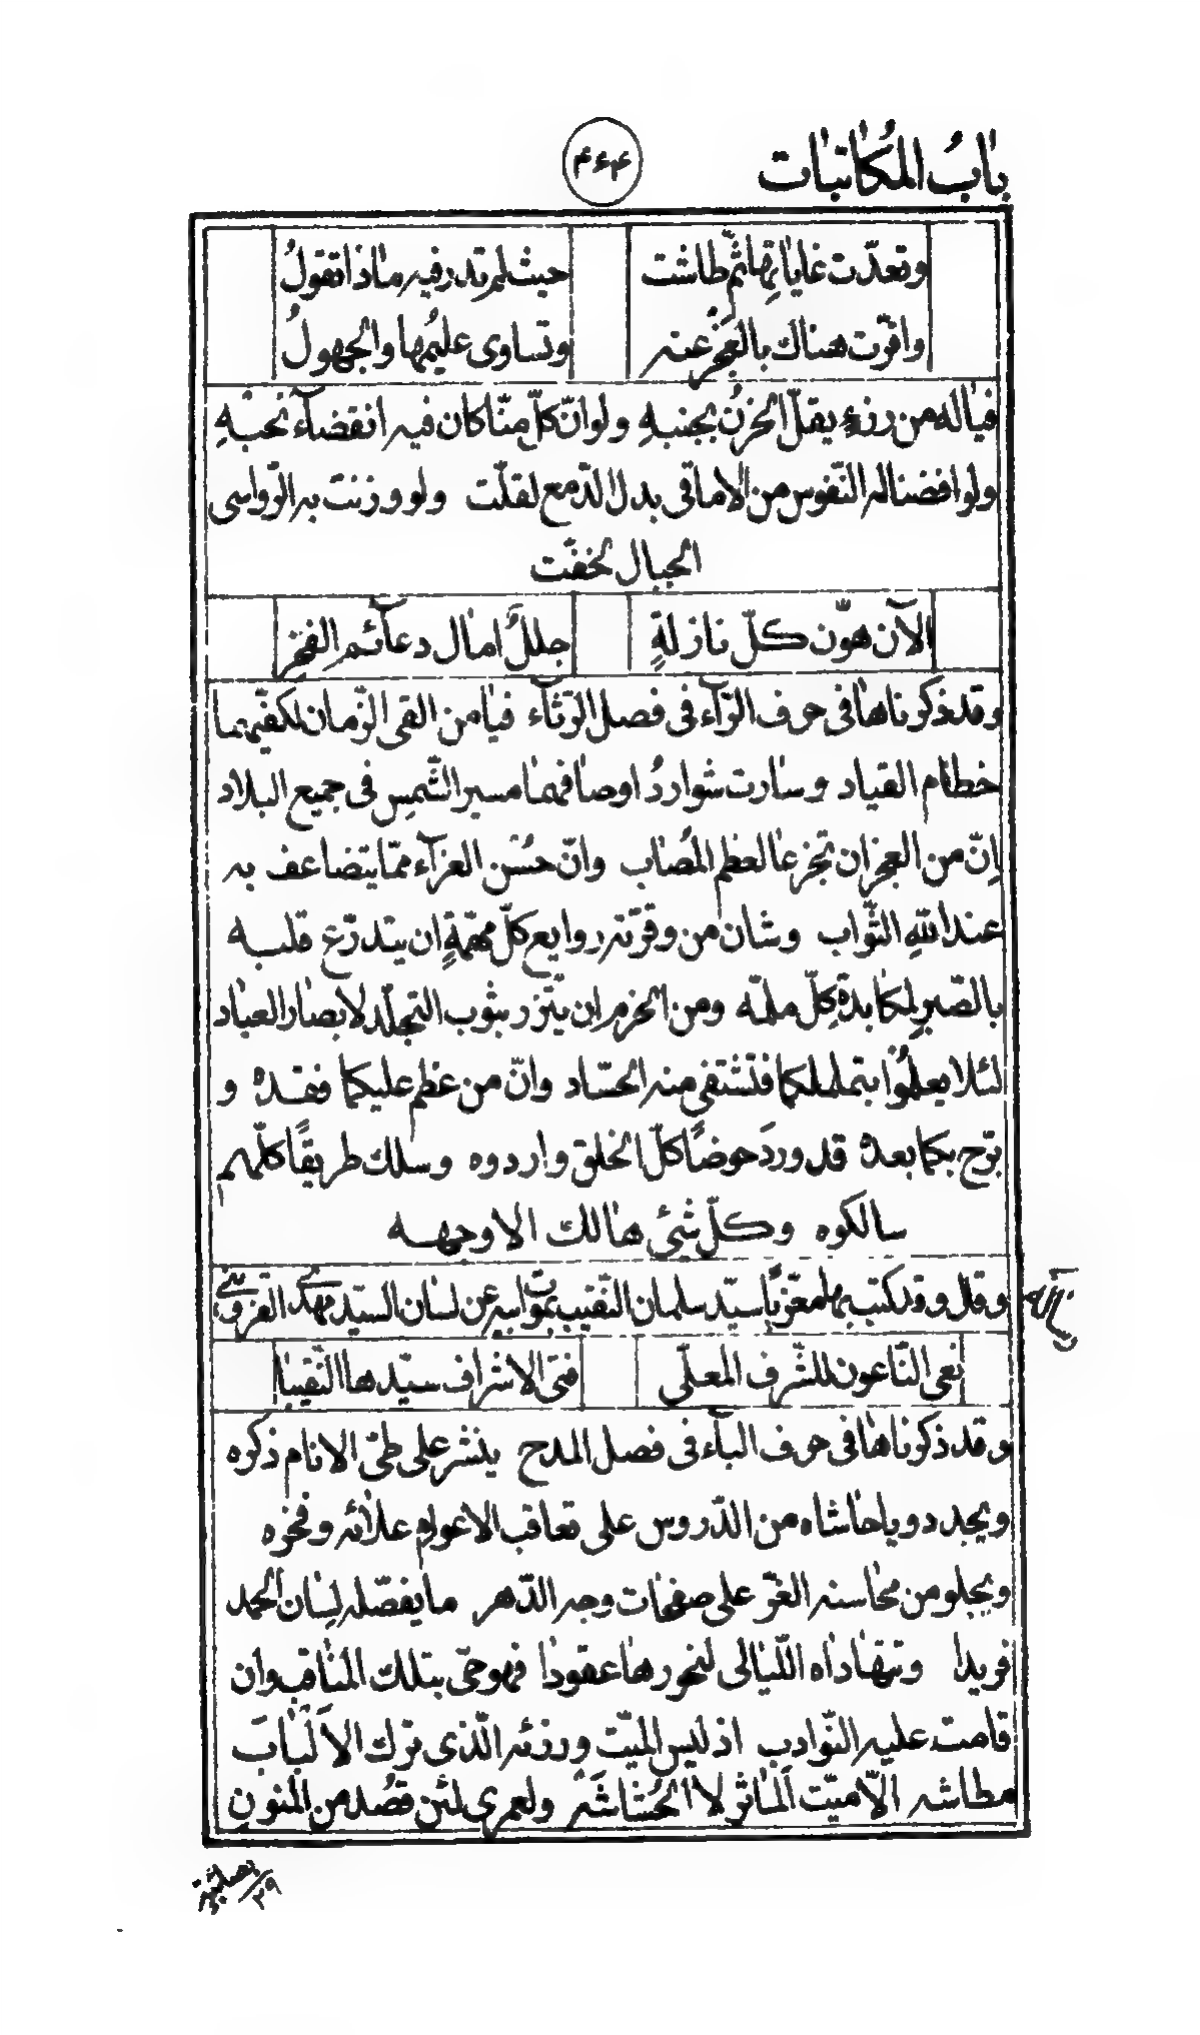 بابُ المُكاتبات
۴۶۴
وتعدّت غاياتِها ثمّ طاشت حيث لم تدر فيه ماذا تقولُ
واقرّت هناك بالعجز عنه وتساوى عليمُها والجهولُ
فياله من رزءٍ يقلّ الحزنُ بجنبهِ ولو انّ كلّ منّا كان فيه انقضآء نحبهِ
ولو افضنا له النّفوس من الاماقى بدل الدّمع لقلّت ولو وزنت به الرّواسى
الجبال لخفّت
الآن هوّن كلّ نازلةٍ جللٌ امال دعآئم الفخرِ
وقد ذكرناها فى حرف الرّآء فى فصل الرّثآء فيا من القى الزّمان لكفّيهما
خطام القياد وسارت شواردُ اوصافهما مسير الشّمسِ فى جميع البلاد
إنّ من العجز ان تجزعا لعظم المُصاب وانّ حُسْن العزآء ممّا يتضاعف به
عند اللهِ الثّواب وشان من وقّرته روايع كلّ مهمّةٍ ان يتدرّع قلبه
بالصّبرِ لمكابدةِ كلّ ملمّه ومن الحزم ان يتّزر بثوب التجلّد لابصار العباد
لئلا يعلمُوا بتململكما فتشتفى منه الحسّاد وانّ من عظم عليكما فقده و
برّح بكما بعدهُ قد وردَ حوضًا كلّ الخلق واردوه وسلك طريقًا كلّهم
سالكوه وكلّ شئ هالك الا وجهه
وقال وقد كتب بها معزّيًا سيّد سلمان النّقيب بموت ابيه عن لسان السيّد مهدى القزوينى
نعى النّاعون للشّرف المعلّى فتى الاشراف سيّدها النّقيبا
وقد ذكرناها فى حرف البآء فى فصل المدح ينشر على طىّ الانام ذكره
ويجدد ويا حاشاه من الدّروس على تعاقب الاعوام علائه وفخره
ويجلو من محاسنه الغرّ على صفحات وجه الدّهر ما يفصّله لِسان الحمد
فريدا وتتهاداه اللّيالى لنحورها عقودا فهو حىّ بتلك المناقب وان
قامت عليه النّوادب اذ ليس الميّت ورزئه الّذى ترك الاَلْبابَ
مطاشه الاّ ميّت المآثر لا الحُشاشَه ولعمرى لئن قصُد من المنونِ
۲۹